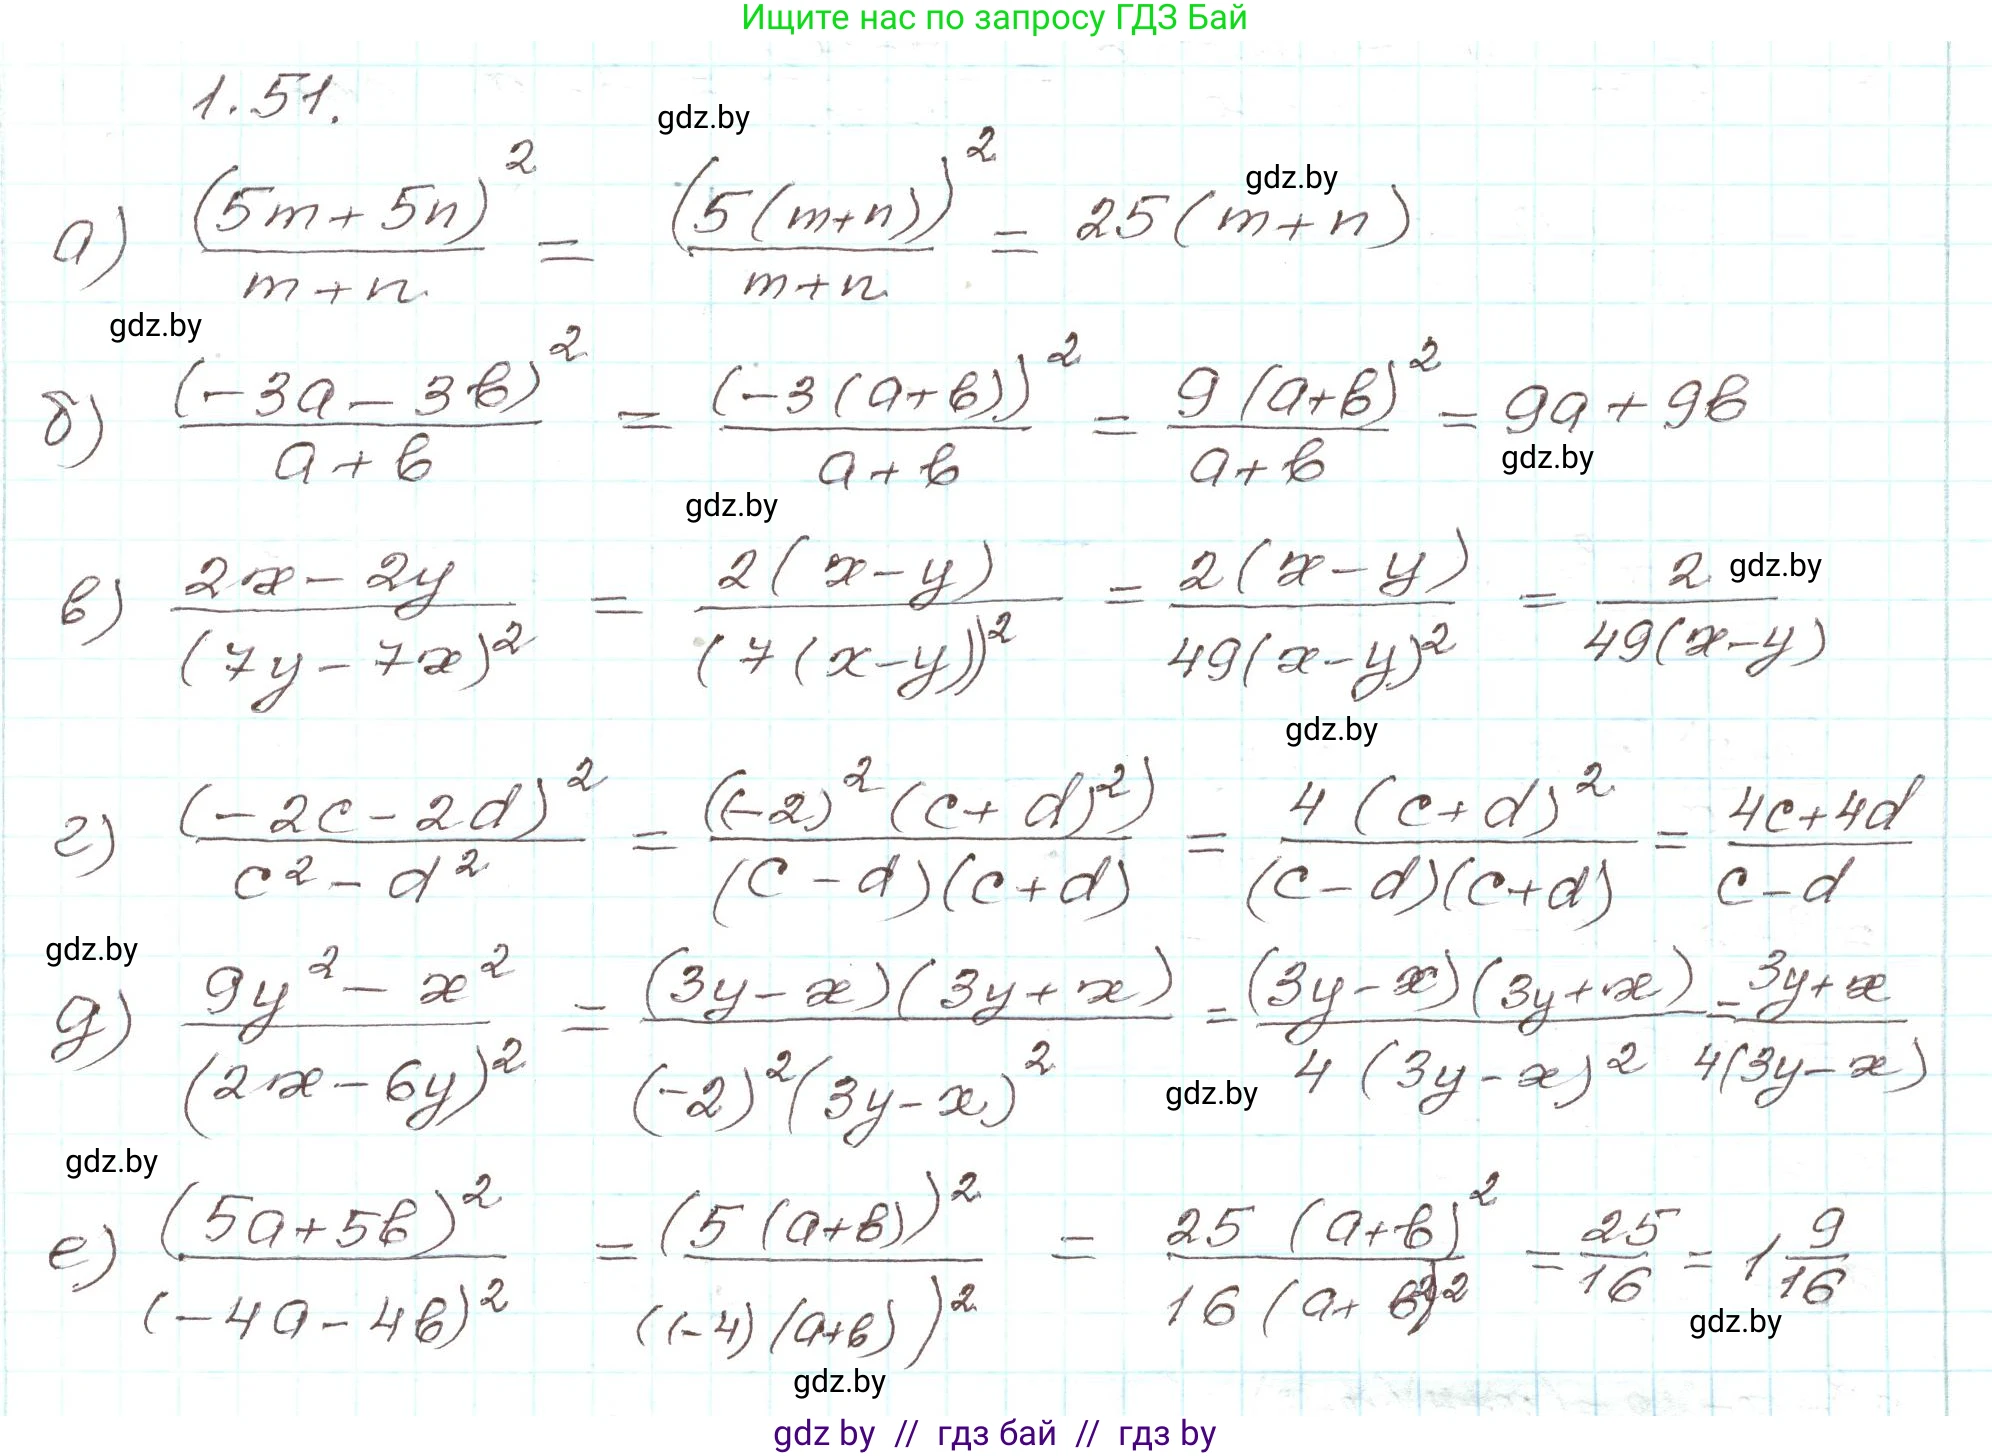 Ищите нас по запросу ГДЗ Бай
1.51.
gdz.by
gdz.by
а) (5m+5n)²/(m+n) = (5(m+n))²/(m+n) = 25(m+n)
gdz.by
б) (-3a-3b)²/(a+b) = (-3(a+b))²/(a+b) = 9(a+b)²/(a+b) = 9a+9b
gdz.by
gdz.by
в) (2x-2y)/(7y-7x)² = 2(x-y)/(7(x-y))² = 2(x-y)/49(x-y)² = 2/49(x-y)
gdz.by
gdz.by
г) (-2c-2d)²/(c²-d²) = ((-2)²(c+d)²)/(c-d)(c+d) = 4(c+d)²/(c-d)(c+d) = (4c+4d)/(c-d)
gdz.by
д) (9y²-x²)/(2x-6y)² = (3y-x)(3y+x)/(-2)²(3y-x)² = (3y-x)(3y+x)/4(3y-x)² = (3y+x)/4(3y-x)
gdz.by
gdz.by
е) (5a+5b)²/(-4a-4b)² = (5(a+b))²/((-4)(a+b))² = 25(a+b)²/16(a+b)² = 25/16 = 1 9/16
gdz.by
gdz.by
gdz by // гдз бай // гдз by